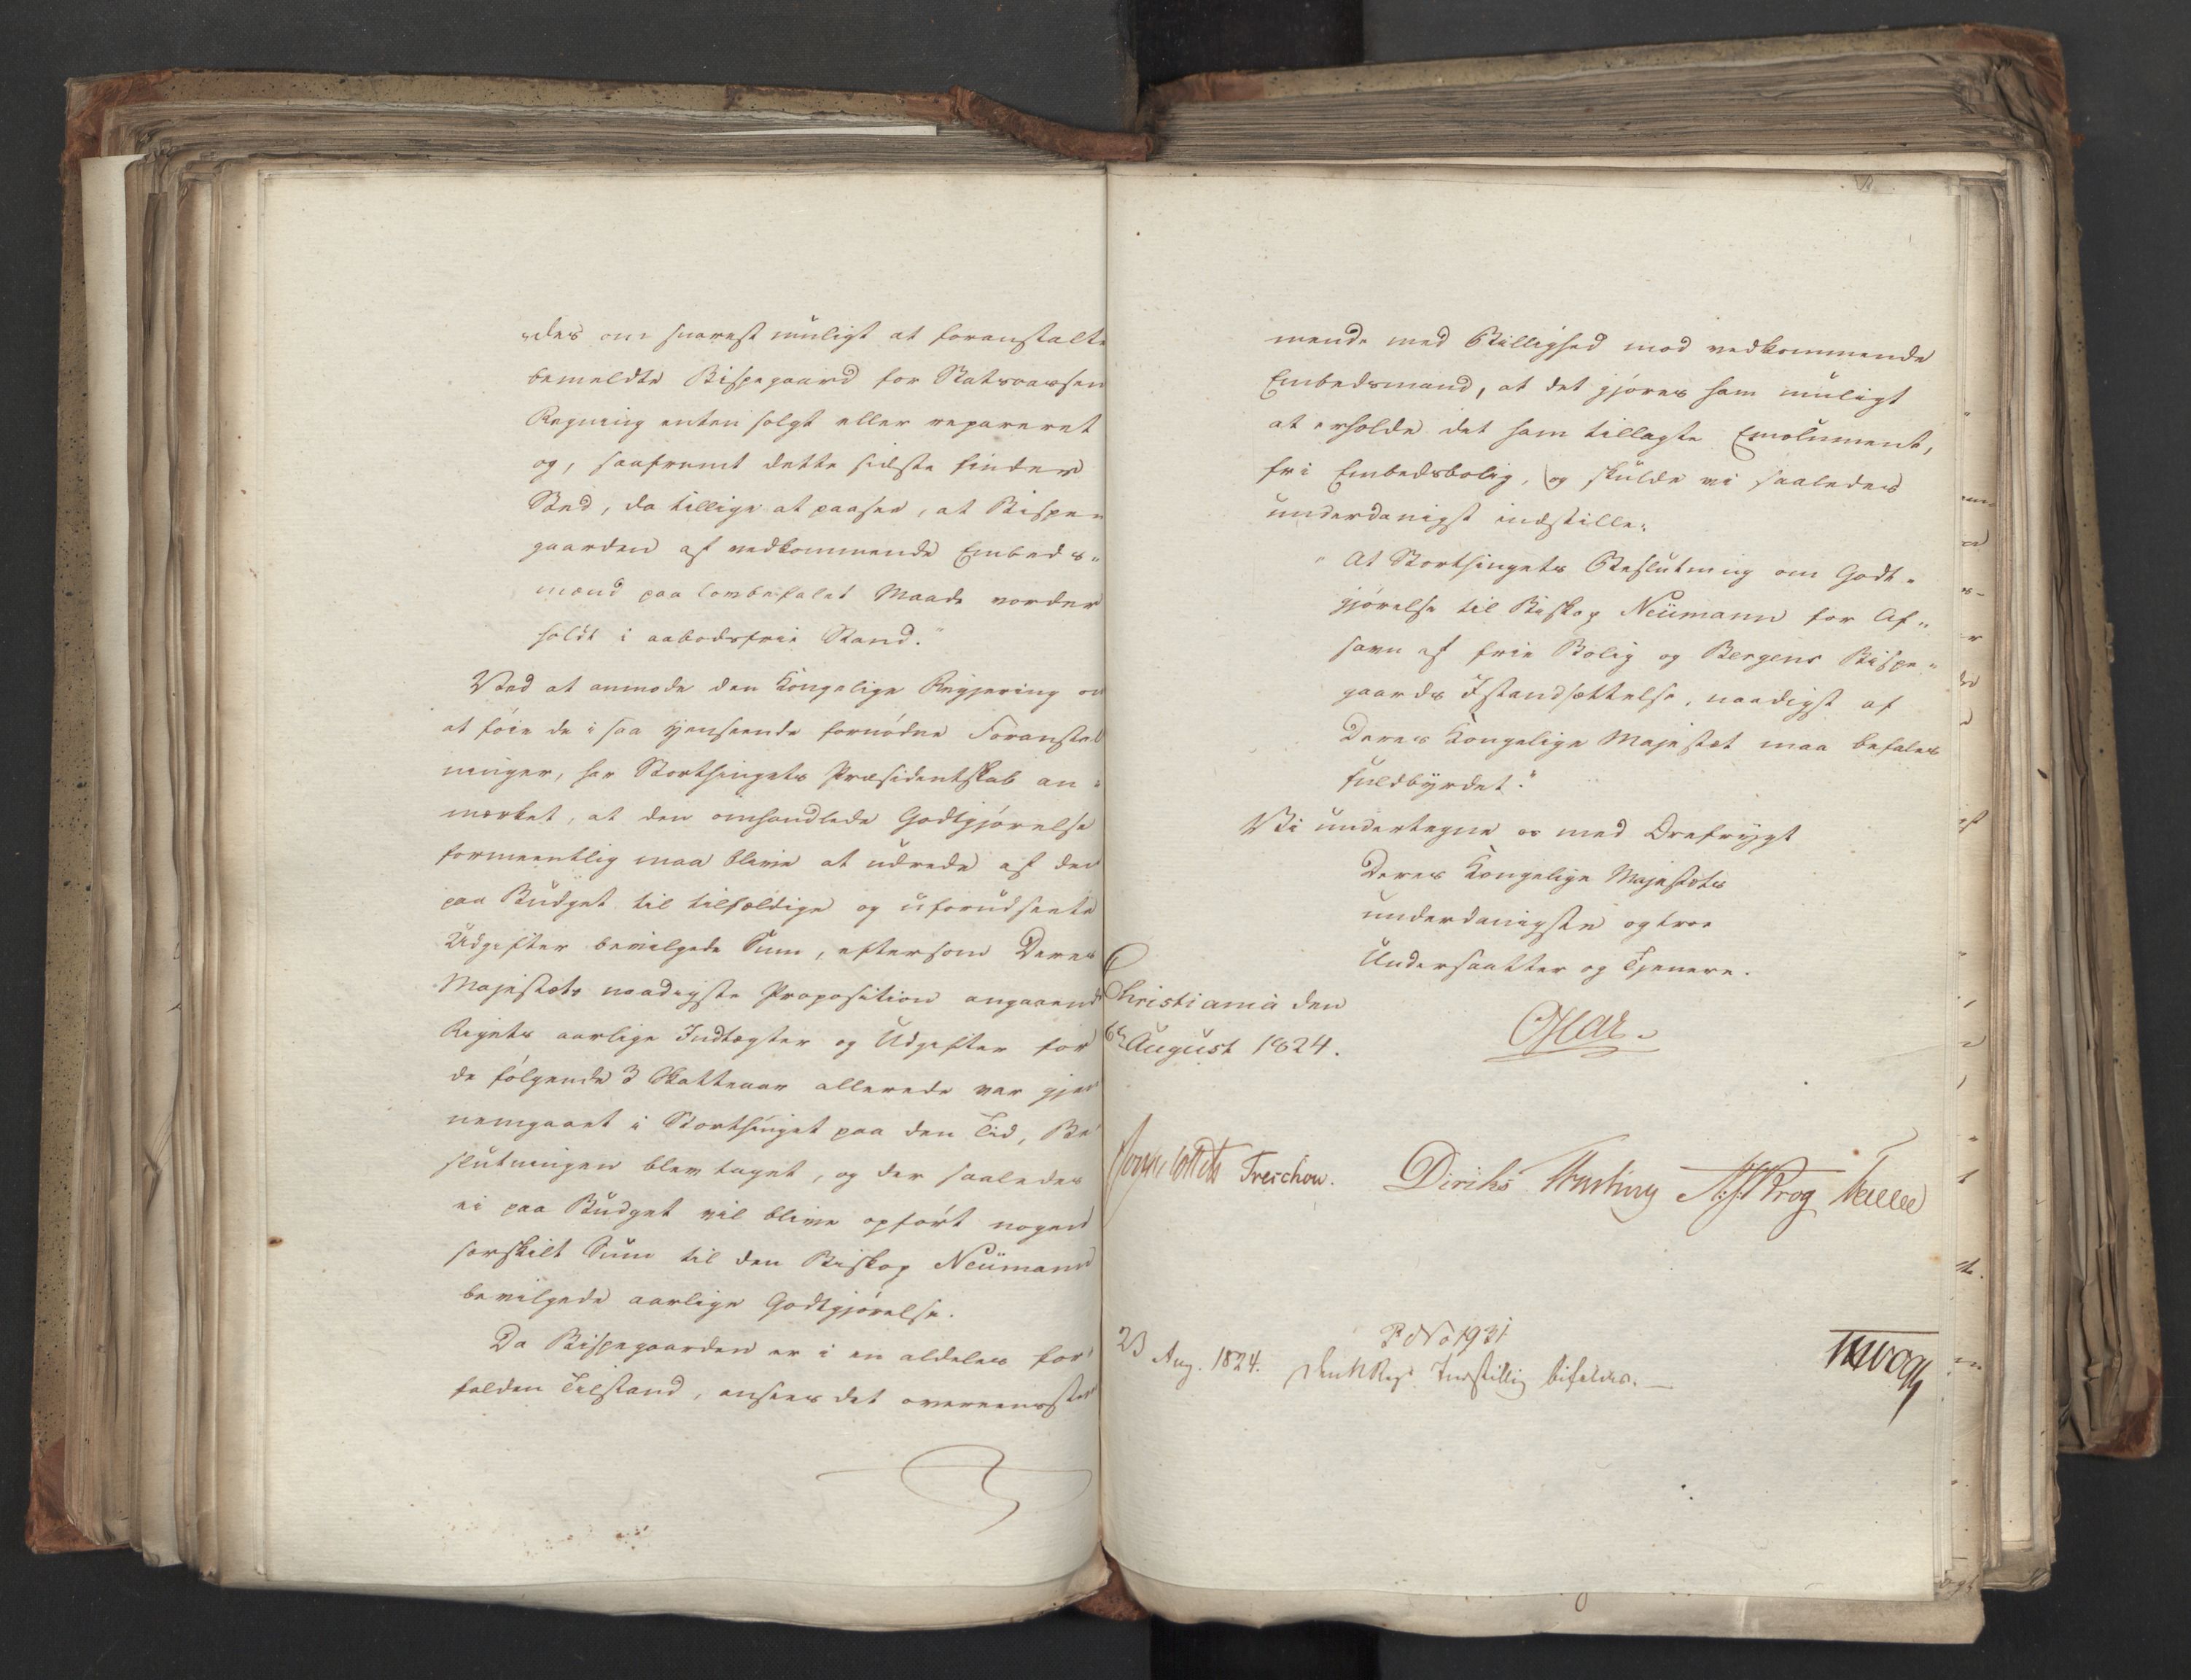 „des om snarest muligt at foranstalte
bemeldte Bispegaard for Statscassens
Regning enten solgt eller repareret
og, saafremt dette sidste finder
Sted, da tillige at paasee, at Bispe„
gaarden af vedkommende Embeds„
mand paa lovbefalet Maade vorder
holdt i aabodsfrie Stand."
Ved at anmode den Kongelige Regjering om
at føie de i saa Henseende fornødne Foranstalt
ninger, har Storthingets Præsidentskab an„
mærket, at den omhandlede Godtgjørelse
formeentlig maa blive at udrede af den
paa Budget til tilfældige og uforudseete
Udgifter bevilgede Sum, eftersom Deres
Majestæts naadigste Proposition angaaende
Rigets aarlige Indtægter og Udgifter for
de følgende 3 Skatteaar allerede var gjen
nemgaaet i Storthinget paa den Tid, Be„
slutningen blev taget, og der saaledes
ei paa Budget vil blive opført nogen
særskilt Sum til den Biskop Neumann
bevilgede aarlige Godtgjørelse.
Da Bispegaarden er i en aldeles for„
falden Tilstand, ansees det overeensstem
mende med Billighed mod vedkommende
Embedsmand, at det gjøres ham muligt
at erholde det ham tillagte Emolument,
fri Embedsbolig, og skulde vi saaledes
underdanigst indstille:
„At Storthingets Beslutning om Godt„
gjørelse til Biskop Neumann for Af„
savn af frie Bolig og Bergens Bispe„
gaards Istandsættelse, naadigst af
Deres Kongelige Majestæt maa befales
fuldbyrdet."
Vi undertegne os med Ærefrygt
Deres Kongelige Majestæts
underdanigste og troe
Undersaatter og Tjenere.
Christiania den
6te August 1824.
Treschow. Diriks
P No 1931
23 Aug. 1824. Den N Regs Indstilling bifaldes.—